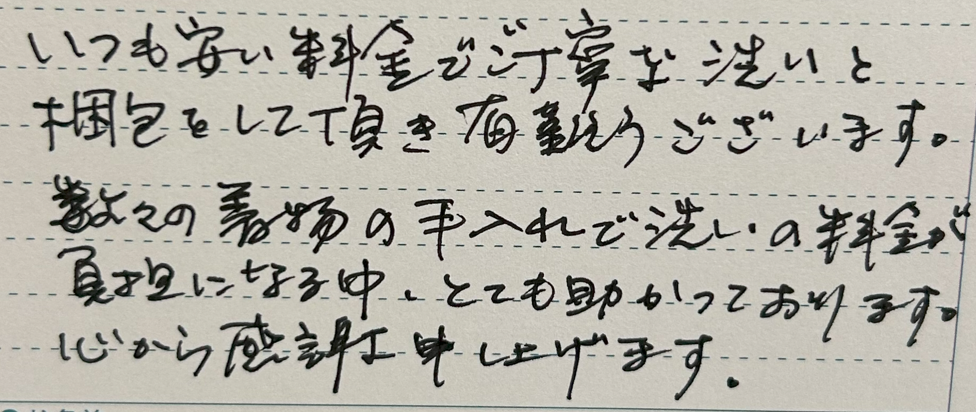 いつも安い料金でご丁寧な洗いと
梱包をして頂き有難うございます。
数々の着物の手入れで洗いの料金が
負担になる中、とても助かっております。
心から感謝申し上げます。